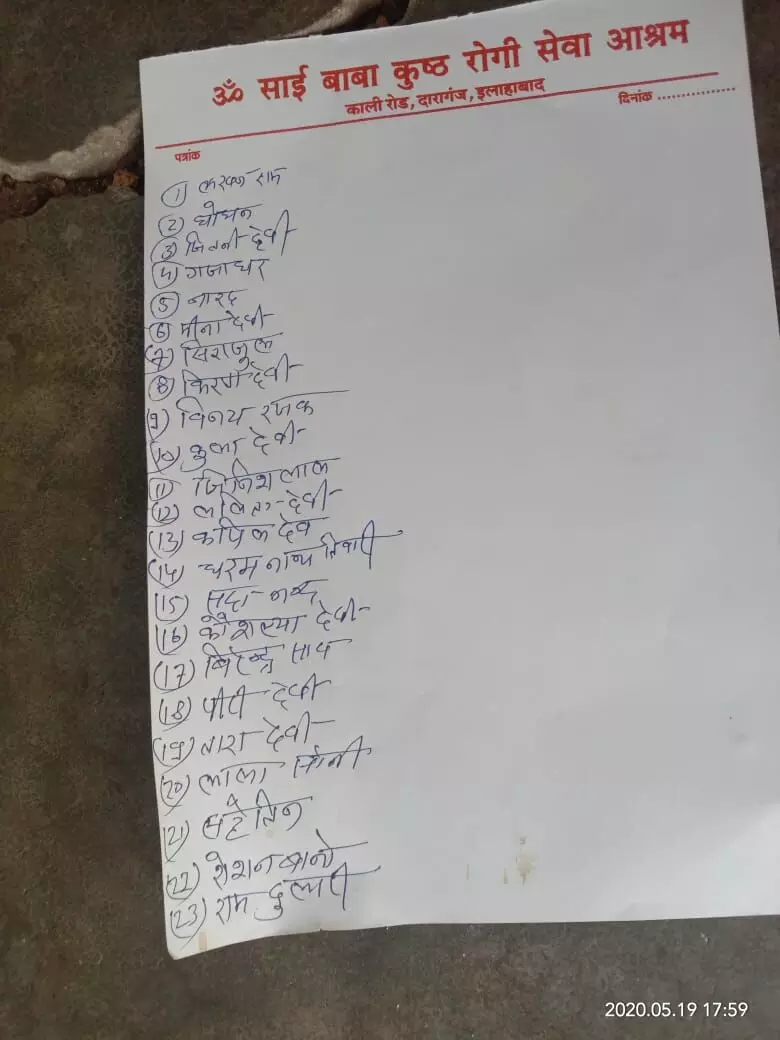 ॐ साई बाबा कुष्ठ रोगी सेवा आश्रम
काली रोड, दारागंज, इलाहाबाद
पत्रांक
दिनांक ................
(1) राम
(2) घोघन
(3) जितनी देवी
(4) गजाधर
(5) नारद
(6) मीना देवी
(7) सिराजुल
(8) किरण देवी
(9) विनय रजक
(10) देवी
(11) लाल
(12) ललिता देवी
(13) कपिल देव
(14) धरम नाथ तिवारी
(15) सदा नन्द
(16) कौशल्या देवी
(17) साव
(18) देवी
(19) तारा देवी
(20) लाला
(21)
(22) बानो
(23) राम दुलारी
2020.05.19 17:59